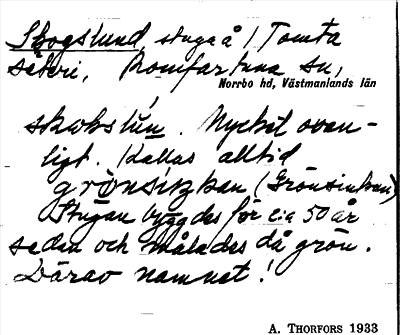 Skogslund, stuga å 1 Tomta
säteri, Romfartuna sn,
Norrbo hd, Västmanlands län
skokslun̄. Mycket ovan-
ligt. Kallas alltid
grönsitzkan (Grönsinkan)
Stugan byggdes för c:a 50 år
sedan och målades då grön.
Därav namnet!
A. THORFORS 1933